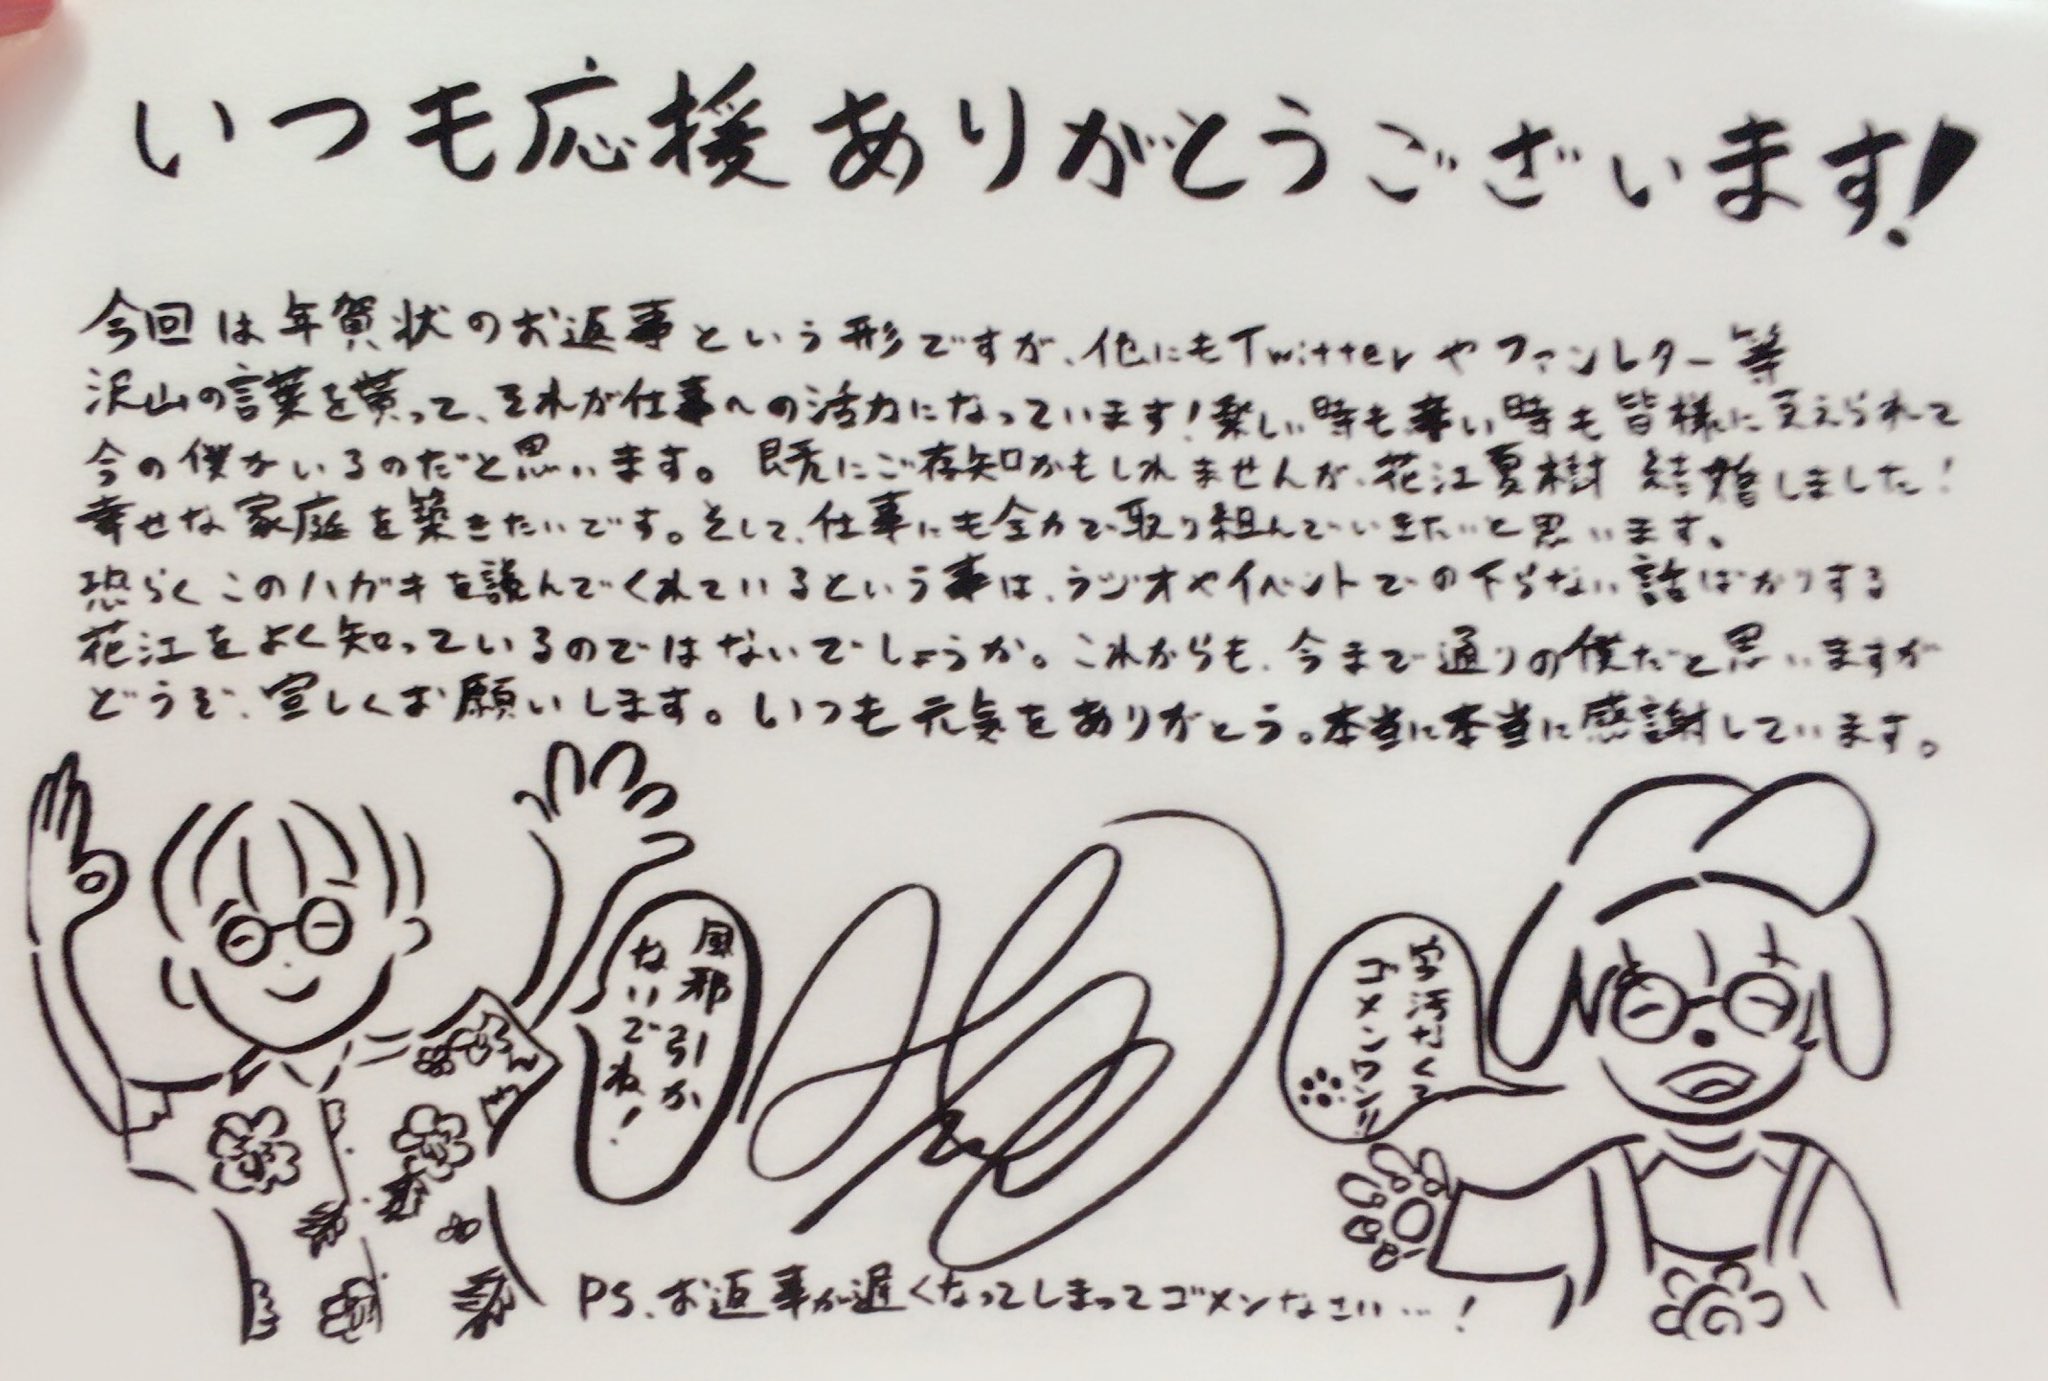 いつも応援ありがとうございます!
今回は年賀状のお返事という形ですが、他にもTwitterやファンレター等
沢山の言葉を貰って、それが仕事への活力になっています!楽しい時も辛い時も皆様に支えられて
今の僕がいるのだと思います。既にご存知かもしれませんが、花江夏樹 結婚しました!
幸せな家庭を築きたいです。そして、仕事にも全力で取り組んでいきたいと思います。
恐らくこのハガキを読んでくれているという事は、ラジオやイベントでの下らない話ばかりする
花江をよく知っているのではないでしょうか。これからも、今まで通りの僕だと思いますが
どうぞ、宜しくお願いします。いつも元気をありがとう。本当に本当に感謝しています。
風邪引か
ないでね!
字汚なくて
ゴメンワン!!
PS、お返事が遅くなってしまってゴメンなさい…!